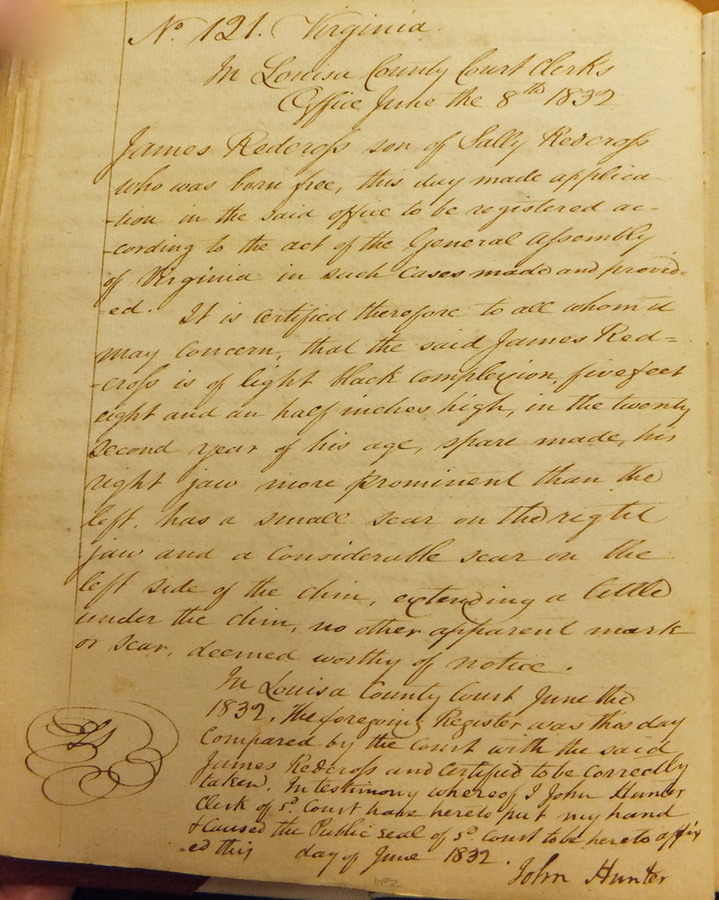 No. 121. Virginia
In Louisa County Court Clerks
Office June the 8th 1832
James Redcross son of Sally Redcross
who was born free, this day made applica-
-tion in the said office to be registered ac-
-cording to the act of the General Assembly
of Virginia in such cases made and provid-
-ed. It is certified therefore to all whom it
may concern, that the said James Red=
-cross is of light black complexion, five feet
eight and an half inches high, in the twenty
second year of his age, spare made, his
right jaw more prominent than the
left. has a small scar on the right
jaw and a considerable scar on the
left side of the chin, extending a little
under the chin, no other apparent mark
or scar, deemed worthy of notice.
In Louisa County Court June the
1832. The foregoing Register was this day
Compared by the Court with the said
James Redcross and Certified to be Correctly
taken. In testimony whereof I John Hunter
Clerk of sd. Court have hereto put my hand
& Caused the Public seal of sd. Court to be hereto affix
-ed this day of June 1832.
John Hunter